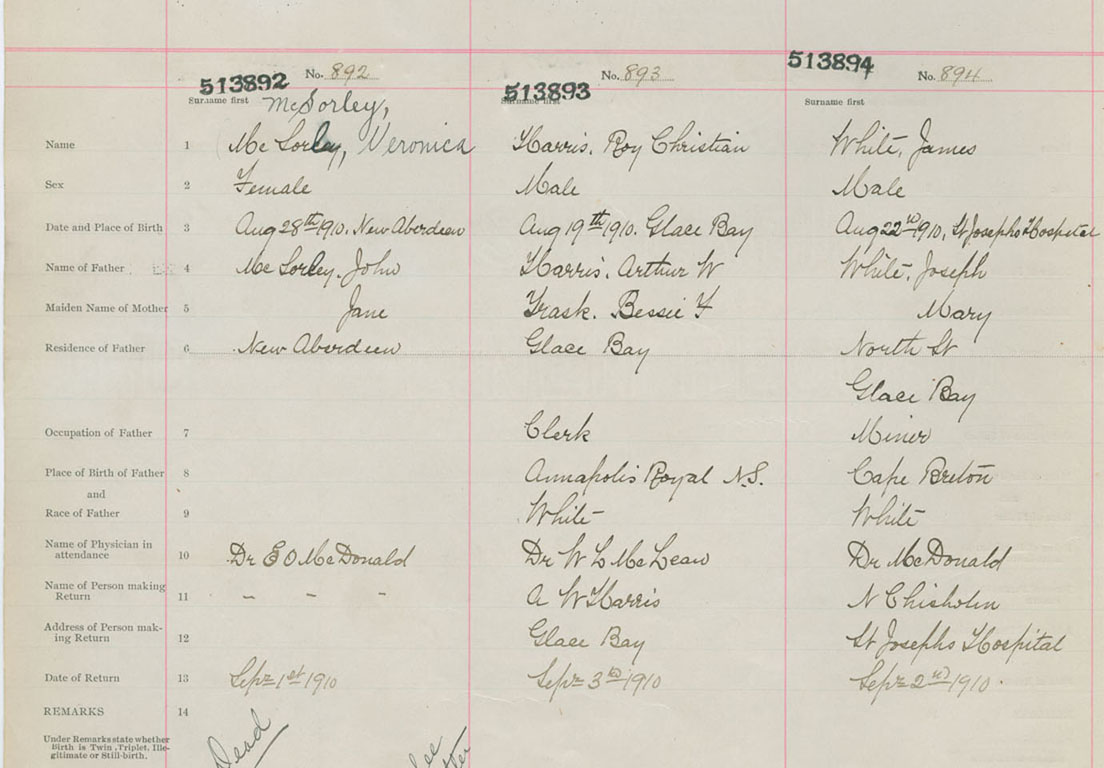 513892 No. 892 513893 No. 893 513894 No. 894
Surname first McSorley, Surname first Surname first
Name 1 McSorley, Veronica Harris, Roy Christian White, James
Sex 2 Female Male Male
Date and Place of Birth 3 Aug 28th 1910. New Aberdeen Aug 19th 1910. Glace Bay Aug 22nd 1910, St Josephs Hospital
Name of Father 4 McSorley, John Harris, Arthur W White, Joseph
Maiden Name of Mother 5 Jane Trask. Bessie F Mary
Residence of Father 6 New Aberdeen Glace Bay North St
Glace Bay
Occupation of Father 7 Clerk Miner
Place of Birth of Father 8 Annapolis Royal N.S. Cape Breton
and
Race of Father 9 White White
Name of Physician in
attendance 10 Dr E O McDonald Dr W L McLean Dr McDonald
Name of Person making
Return 11 – – – A W Harris N Chisholm
Address of Person mak-
ing Return 12 Glace Bay St Josephs Hospital
Date of Return 13 Sept 1st 1910 Sept 3rd 1910 Sept 2nd 1910.
REMARKS 14
Under Remarks state whether
Birth is Twin, Triplet, Ille-
gitimate or Still-birth.
Dead